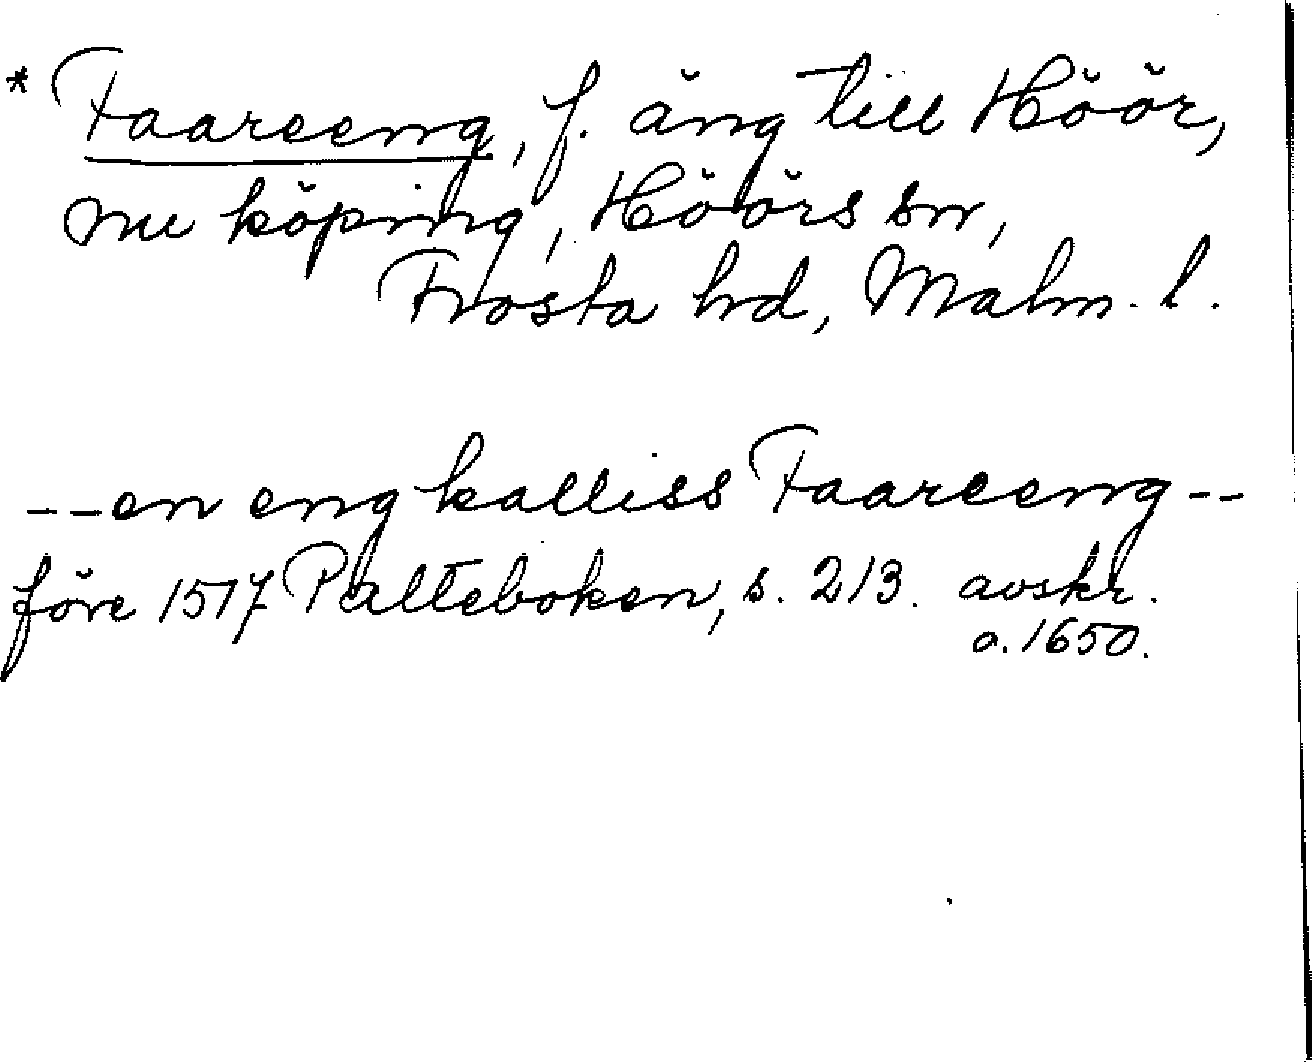 * Faareeng, f. äng till Höör,
nu köping, Höörs sn,
Frosta hd, Malm. l.
--en eng kalliss Faareeng--
före 1517 Palteboken, s. 213. avskr.
a. 1650.